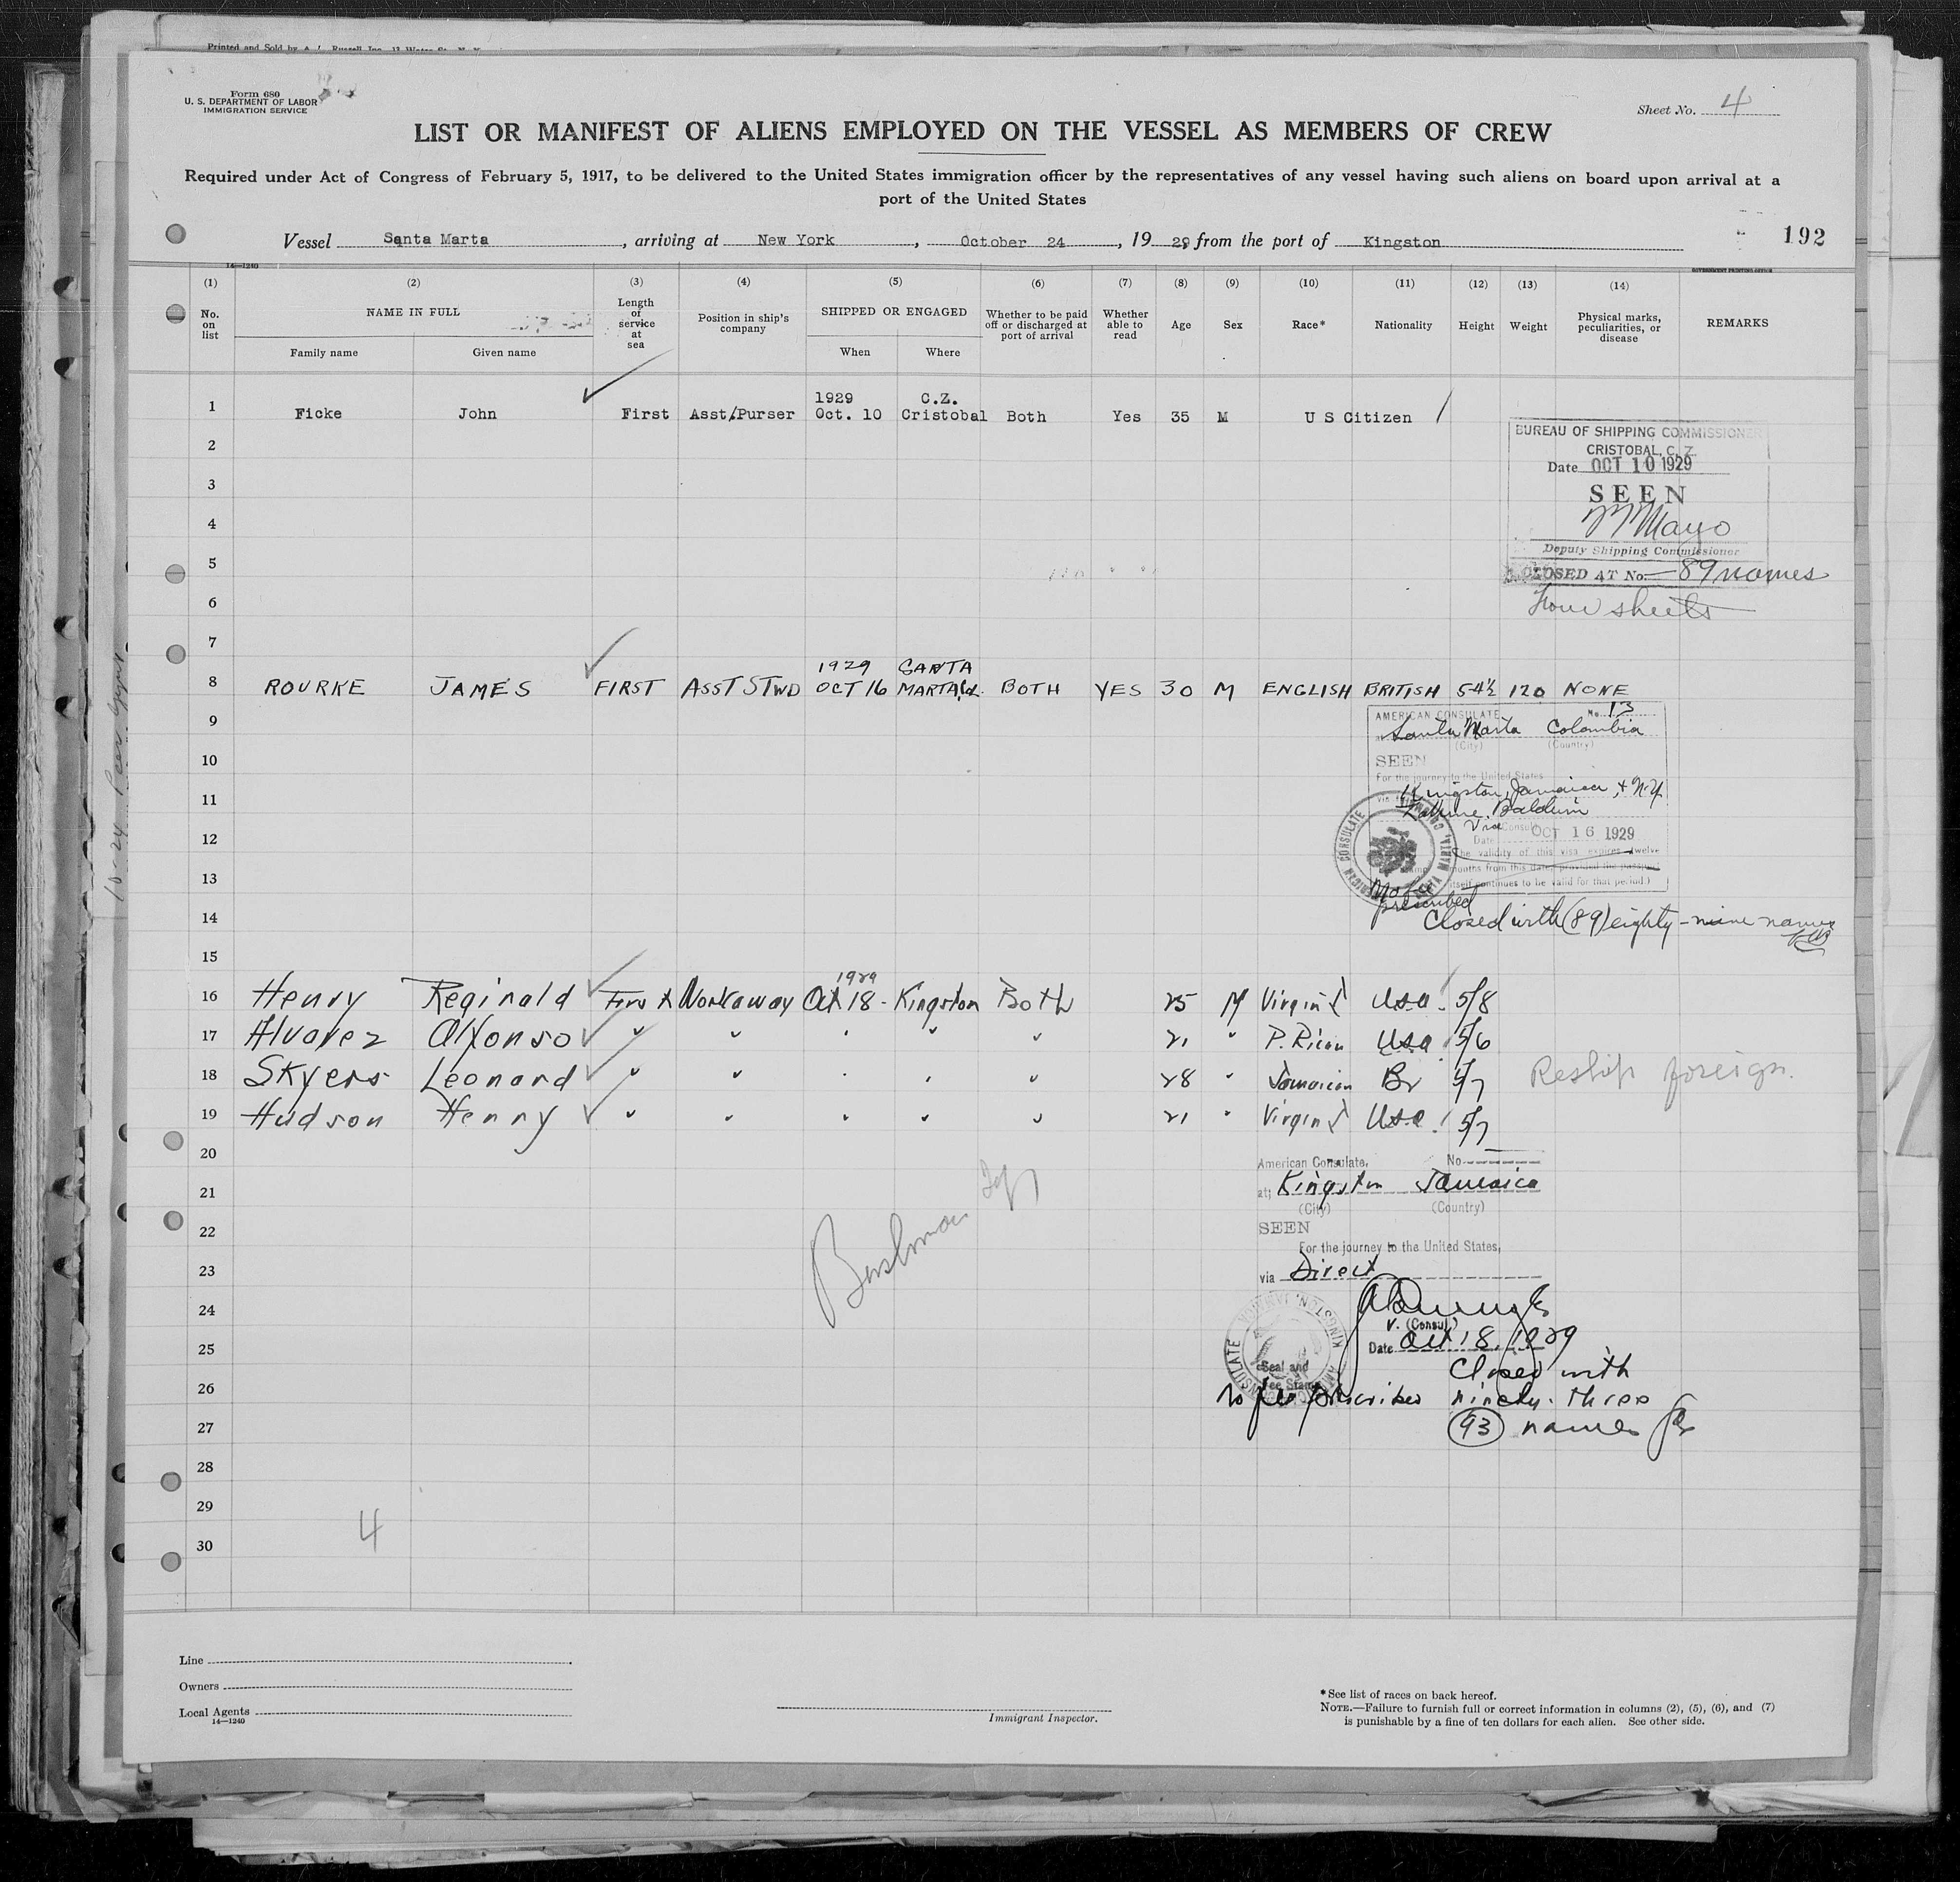 Printed and Sold by
Form 680
U. S. DEPARTMENT OF LABOR
IMMIGRATION SERVICE
Sheet No. 4
LIST OR MANIFEST OF ALIENS EMPLOYED ON THE VESSEL AS MEMBERS OF CREW
Required under Act of Congress of February 5, 1917, to be delivered to the United States immigration officer by the representatives of any vessel having such aliens on board upon arrival at a
port of the United States
Vessel Santa Marta, arriving at New York, October 24, 19 29, from the port of Kingston
192
14—1240 GOVERNMENT PRINTING OFFICE
(1) (2) (3) (4) (5) (6) (7) (8) (9) (10) (11) (12) (13) (14)
No. on list
NAME IN FULL
Family name Given name
Length of service at sea
Position in ship's company
SHIPPED OR ENGAGED
When Where
Whether to be paid off or discharged at port of arrival
Whether able to read
Age
Sex
Race*
Nationality
Height
Weight
Physical marks, peculiarities, or disease
REMARKS
1 Ficke John First Asst/Purser 1929 Oct. 10 C.Z. Cristobal Both Yes 35 M U S Citizen
2
3
4
5
6
7
BUREAU OF SHIPPING COMMISSIONER
CRISTOBAL, C. Z.
Date OCT 10 1929
SEEN
Mayo
Deputy Shipping Commissioner
CLOSED AT No. 89 names
Four sheets
8 ROURKE JAMES FIRST ASST STWD 1929 OCT 16 SANTA MARTA, Col. BOTH YES 30 M ENGLISH BRITISH 5 4½ 120 NONE
9
10
11
12
13
14
15
AMERICAN CONSULATE No. 13
Santa Marta Colombia
(City) (Country)
SEEN
For the journey to the United States
via Kingston, Jamaica, + N.Y.
Baldwin
Vice Consul
Date OCT 16 1929
The validity of this visa expires twelve
months from this date, provided the passport
itself continues to be valid for that period.)
AMERICAN CONSULATE
No fee
prescribed
Closed with (89) eighty-nine names
16 Henry Reginald First Workaway 1929 Oct 18 - Kingston Both 25 M Virgin I Usa 5/8
17 Alvarez Alfonso " " " " " 21 " P. Rican Usa 5/6
18 Skyers Leonard " " " " " 28 " Jamaican Br 5/7 Reship foreign.
19 Hudson Henry " " " " " 21 " Virgin I Usa 5/7
20
21
22
23
24
25
26
27
28
29
30
American Consulate, No
at; Kingston Jamaica
(City) (Country)
SEEN
For the journey to the United States,
via Direct
V. (Consul)
Date Oct 18, 1929
Seal and
Fee Stamp
Closed with
No fee prescribed ninety-three
(93) names
4
Line
Owners
Local Agents
14—1240
Immigrant Inspector.
*See list of races on back hereof.
NOTE.—Failure to furnish full or correct information in columns (2), (5), (6), and (7)
is punishable by a fine of ten dollars for each alien. See other side.